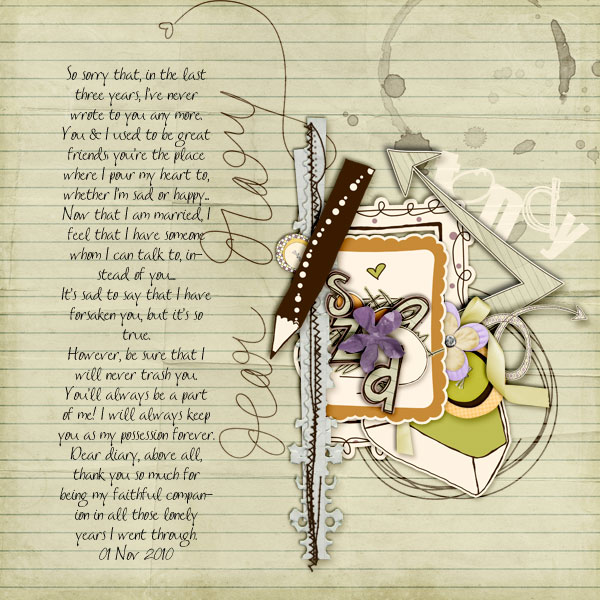 So sorry that, in the last
three years, I've never
wrote to you any more.
You & I used to be great
friends; you're the place
where I pour my heart to,
whether I'm sad or happy...
Now that I am married, I
feel that I have someone
whom I can talk to, in-
stead of you...
It's sad to say that I have
forsaken you, but it's so
true.
However, be sure that I
will never trash you.
You'll always be a part
of me! I will always keep
you as my possession forever.
Dear diary, above all,
thank you so much for
being my faithful compan-
ion in all those lonely
years I went through.
01 Nov 2010
dear diary